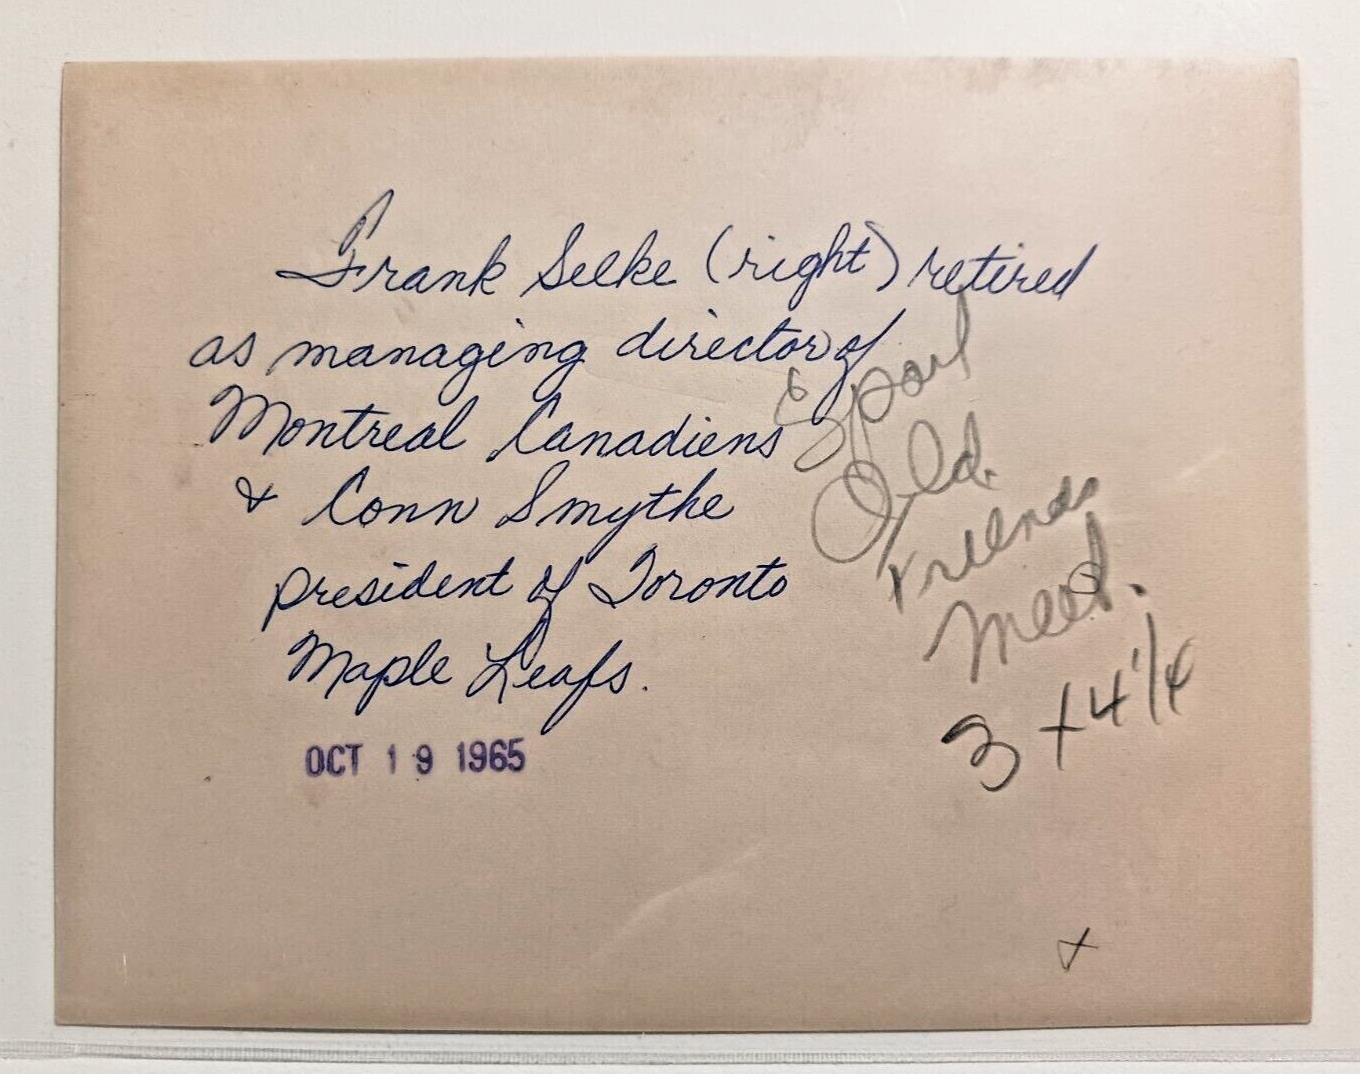 Frank Selke (right) retired
as managing director of
Montreal Canadiens
& Conn Smythe
president of Toronto
Maple Leafs.
OCT 19 1965
Old
Friends
Meet.
3 x 4 1/4
x